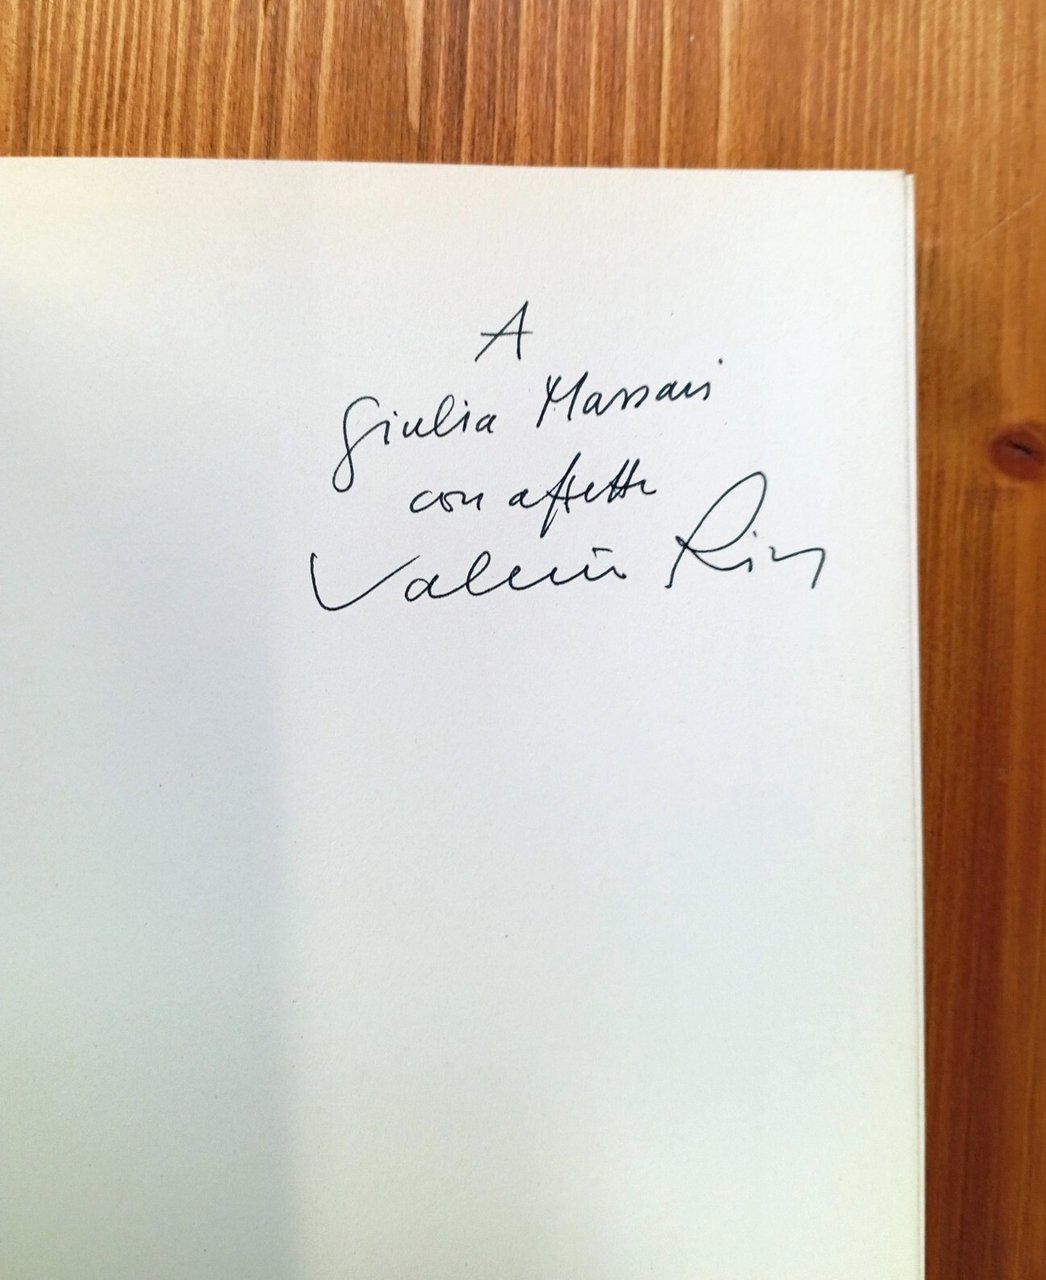 A
Giulia Massari
con affetto
Valerio Riva